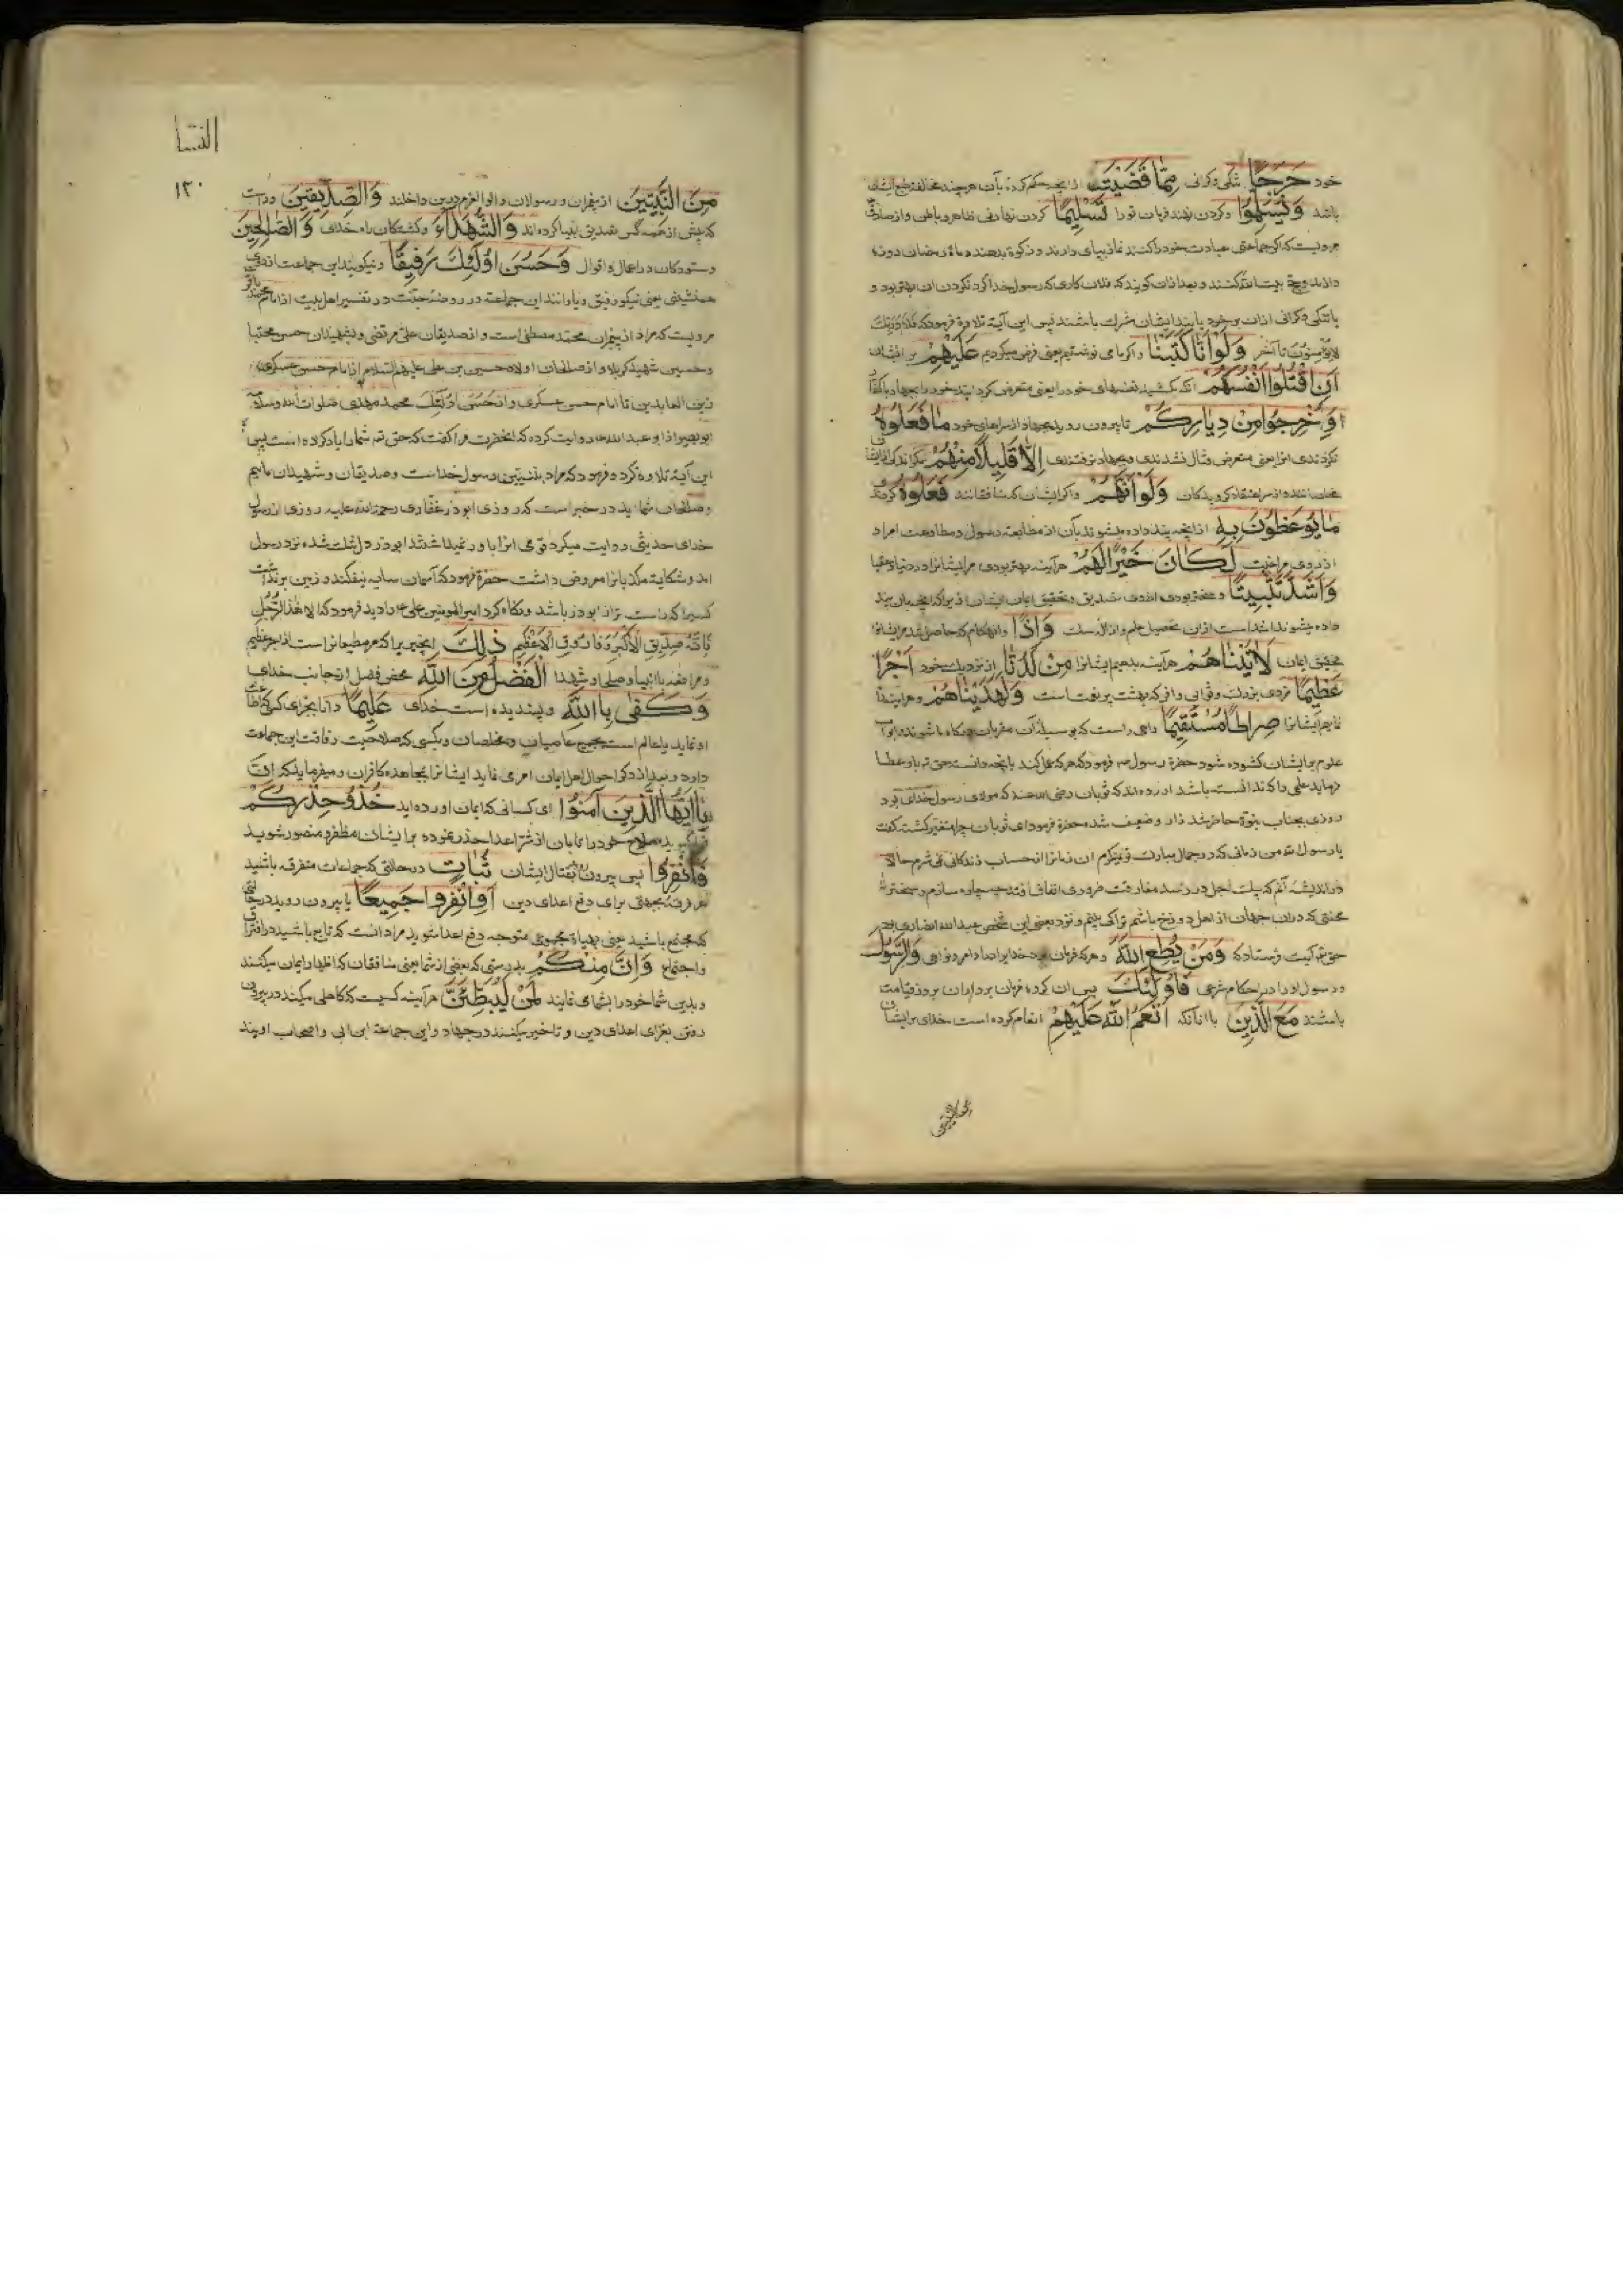 خود حَرَجًا تنکی و کرانی مِمَّا قَضَيْتَ از انچه حکم کرده بآن هر چند مخالف طبع ایشان
باشد وَيُسَلِّمُوا و کردن نهند فرمان تو را تَسْلِيمًا کردن نهادنی ظاهر و باطن و از صادق
مرویست که اگر جماعتی عبادت خود را کنند نماز بپای دارند و زکوة بدهند و ماه رمضان روزه
دارند و حج بیت الله کنند و بعد ازان کویند که فلان کاری که رسول خدا کرد نکردن ان بهتر بود و
یا تنکی و کرانی ازان بر خود یابند ایشان مشرک باشند پس این آیت تلاوة فرمود که فَلَا وَرَبِّكَ
لا يؤمنون تا آخر وَلَوْ أَنَّا كَتَبْنَا و اکر ما می نوشتیم یعنی فرض میکردیم عَلَيْهِمْ بر ایشان
أَنِ اقْتُلُوا أَنْفُسَكُمْ انکه بکشید نفسهای خود را یعنی متعرض کردانید خود را بجهاد با کفار
أَوِ اخْرُجُوا مِنْ دِيَارِكُمْ تا بیرون روید بجهاد از سراهای خود مَا فَعَلُوهُ
نکردندی انرا یعنی متعرض قتال نشدندی و بجهاد نرفتندی إِلَّا قَلِيلٌ مِنْهُمْ مکر اندکی از ایشان
وَلَوْ أَنَّهُمْ و اکر ایشان که منافقانند فَعَلُوا کردند
مَا يُوعَظُونَ بِهِ از انچه پند داده میشوند بآن از متابعت رسول و مطاوعت امر او
از روی لَكَانَ خَيْرًا لَهُمْ هرآینه بهتر بودی مر ایشانرا در دنیا و عقبا
وَأَشَدَّ تَثْبِيتًا و سختتر بودی از روی تصدیق و تحقیق ایمان ایشان زیرا که انچه بان پند
داده میشوند اشد است ازان تحصیل علم و ازاله شک وَإِذًا و انهنکام که حاصل شد مر ایشانرا
تحقیق ایمان لَآتَيْنَاهُمْ هرآینه بدهیم ایشانرا مِنْ لَدُنَّا از نزدیک خود أَجْرًا
عَظِيمًا مزدی بزرک و ثوابی وافر که بهشت پر نعمت است وَلَهَدَيْنَاهُمْ و هرآینه راه
نماییم ایشانرا صِرَاطًا مُسْتَقِيمًا راهی راست که بوسیله آن مقربان درکاه ما شوند و ابواب
علوم برایشان کشوده شود حضرة رسول ص فرمود که هر که عمل کند بانچه دانست حق تع باو عطا
فرماید علمی را که ندانسته باشد اورده اند که ثوبان رضی الله عنه که مولای رسول خدای بود
روزی بجناب نبوة حاضر شد زار و ضعیف شده حضرة فرمود ای ثوبان چرا متغیر کشته کفت
یا رسول الله من زمانی که در جمال مبارک تو ننکرم ان زمانرا از حساب زندکانی نمی شمرم حالا
در اندیشه آنم که پیک اجل در رسد مفارقت ضروری اتفاق افتد چه چاره سازم و سختتر ازان
محنتی که دران جهان از اهل دوزخ باشم تراکی بینم و نزد بعضی این شخص عبدالله انصاری بود
حق تع آیت فرستاد که وَمَنْ يُطِعِ اللَّهَ و هر که فرمان برد خدایرا در اوامر و نواهی وَالرَّسُولَ
و رسول او را در احکام شرعی فَأُولَئِكَ پس ان کروه فرمان برداران بروز قیامت
باشند مَعَ الَّذِينَ با انانکه أَنْعَمَ اللَّهُ عَلَيْهِمْ انعام کرده است خدای برایشان
من النبیین
النسا
١٢٠
مِنَ النَّبِيِّينَ از پیغمبران و رسولان و اولوا العزم درین داخلند وَالصِّدِّيقِينَ و راست
که پیش از همه کس تصدیق انبیا کرده اند وَالشُّهَدَاءِ و کشتکان راه خدای وَالصَّالِحِينَ
و ستودکان در اعمال و اقوال وَحَسُنَ أُولَئِكَ رَفِيقًا و نیکویند این جماعت از روی
همنشینی یعنی نیکو رفیق و یارانند این جماعة در روضه جنت در تفسیر اهل بیت از امام محمد باقر
مرویست که مراد از پیغمبران محمد مصطفی است و از صدیقان علی مرتضی و بشهیدان حسن مجتبا
و حسین شهید کربلا و از صالحان اولاد حسین بن علی علیهم السلام از امام
زین العابدین تا امام حسن عسکری و از حسن اولئک محمد مهدی صلوات الله و سلامه
ابو بصیر از ابو عبدالله روایت کرده که انحضرت مرا کفت که حق تع شما را یاد کرده است پس
این آیة تلاوة کرد و فرمود که مراد بنبیین رسول خداست و صدیقان و شهیدان ماییم
و صالحان شمایید در خبر است که روزی ابوذر غفاری رحمة الله علیه روزی از رسول
خدای حدیثی روایت میکرد قومی انرا باور نمیداشتند ابوذر دل تنک شده نزد رسول
امد و شکایة منکران معروض داشت حضرة فرمود که آسمان سایه نیفکند و زمین برنداشت
کسیرا که راست تر از ابوذر باشد و نکاه کرد امیر المومنین علی ع را دید فرمود که الا هذا الرجل
فانه صدیق الاکبر و فاروق الاعظم ذَلِكَ این خیر یرا که مر مطیعانراست از اجر عظیم
و مرافقه با انبیا و صلحا و شهدا الْفَضْلُ مِنَ اللَّهِ محض فضل از جانب خدای
وَكَفَى بِاللَّهِ و پسندیده است خدای عَلِيمًا دانا بجزای کسی که اطاعت
او نماید یا عالم است بجمیع عاصیان و مخلصان و بکسی که صلاحیت رفاقت این جماعت
دارد و بعد از ذکر احوال اهل ایمان امر می نماید ایشانرا بمجاهده کافران و میفرماید که
يَا أَيُّهَا الَّذِينَ آمَنُوا ای کسانی که ایمان اورده اید خُذُوا حِذْرَكُمْ
فرا کیرید سلاح خود را تا بان از شر اعدا حذر نموده بر ایشان مظفر و منصور شوید
فَانْفِرُوا پس بیرون روید بقتال ایشان ثُبَاتٍ در حالتی که جماعات متفرقه باشید
هر فرقه بجهتی برای دفع اعدای دین أَوِ انْفِرُوا جَمِيعًا یا بیرون روید در حالتی
که مجتمع باشید یعنی بهیاة مجموعی متوجه دفع اعدا شوید مراد انست که تابع باشید در افتراق
و اجتماع وَإِنَّ مِنْكُمْ بدرستی که بعضی از شما یعنی منافقان که اظهار ایمان میکنند
و بدین شما خود را بشما می نمایند لَمَنْ لَيُبَطِّئَنَّ هرآینه کسیست که کاهلی میکند در بیرون
رفتن بغزای اعدای دین و تاخیر میکنند در جهاد و این جماعة ابن ابی و اصحاب اویند